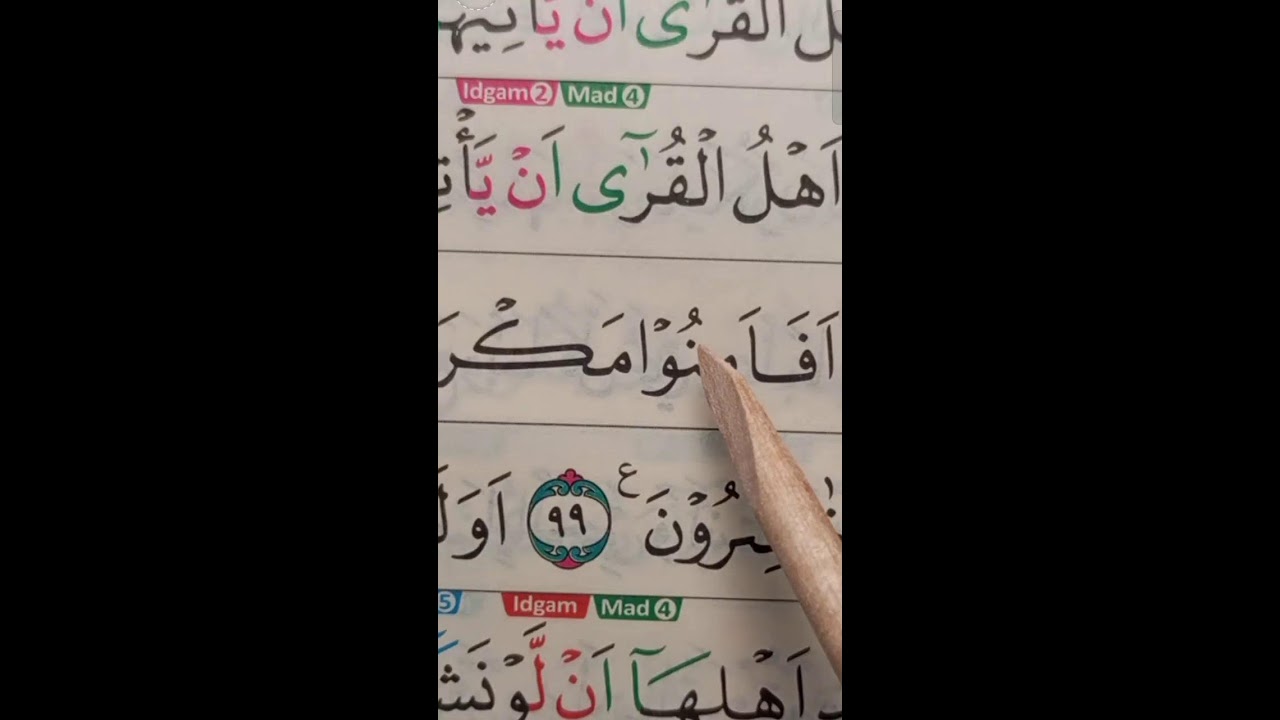 الْقُرٰٓى اَنْ يَّاْتِيَهُ
Idgam 2 Mad 4
اَهْلُ الْقُرٰٓى اَنْ يَّاْتِ
اَفَاَمِنُوْا مَكْرَ
سِرُوْنَ ع ٩٩ اَوَلَ
5 Idgam Mad 4
اَهْلِهَآ اَنْ لَّوْ نَشَ